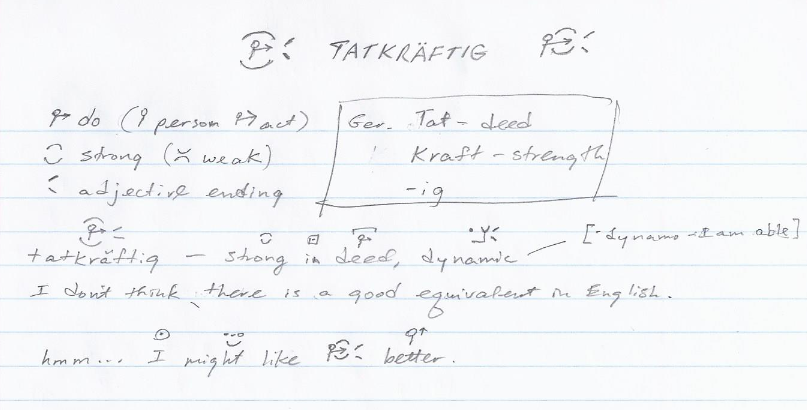 TATKRÄFTIG
do (person act)
strong (weak)
adjective ending
Ger. Tat - deed
Kraft - strength
-ig
tatkräftig - strong in deed, dynamic [-dynamo - I am able]
I don't think there is a good equivalent in English.
hmm... I might like better.